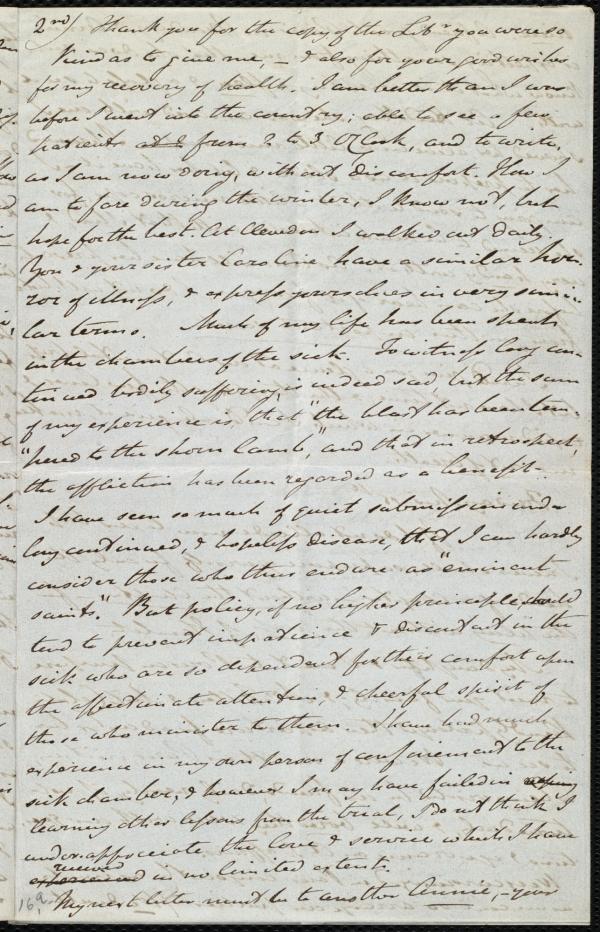 2nd) Thank you for the copy of the Libr you were so
kind as to give me, – & also for your good wishes
for my recovery of health. I am better than I was
before I went into the country; able to see a few
patients at 2 from 2 to 3 O'Clock, and to write,
as I am now doing, without discomfort. How I
am to fare during the winter, I know not, but
hope for the best. At Clevedon I walked out daily.
You & your sister Caroline have a similar hor-
ror of illness, & express yourselves in very simi-
lar terms. Much of my life has been spent
in the chambers of the sick. To witness long con-
tinued bodily suffering, is indeed sad, but the sum
of my experience is, that "the blast has been tem-
"pered to the shorn lamb," and that in retrospect,
the affliction has been regarded as a benefit.
I have seen so much of quiet submission under
long continued, & hopeless disease, that I can hardly
consider those who thus endure as "eminent
saints". But policy, if no higher principle, should
tend to prevent impatience & discontent in the
sick who are so dependent for their comfort upon
the affectionate attention, & cheerful spirit of
those who minister to them. I have had much
experience in my own person of confinement to the
sick chamber, & however I may have failed in
learning other lessons from the trial, I do not think I
under-appreciate the love & service which I have
received
experienced in no limited extent.
My next letter must be to another Annie, – your
16a